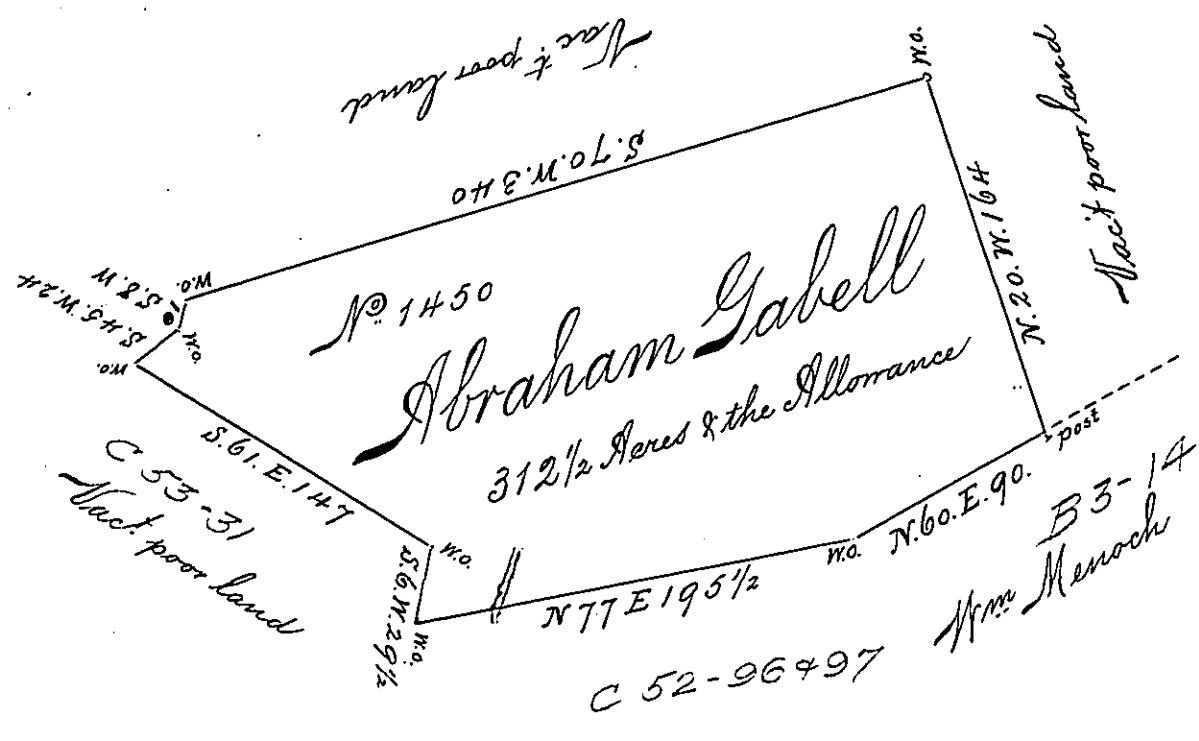 Vac't poor land
W.O.
S.70.W.340
Vac't poor land
N.20.W.164
W.O.
S.8.W
S.45.W.24
W.O.
W.O.
No 1450
Abraham Gabell
312½ Acres & the Allowance
S.61.E.147
C 53-31
Vac't poor land
W.O.
S.6.W.29½
W.O.
N77E195½
W.O.
N.60.E.90.
post
B3-14
Wm Menoch
C 52-96&97